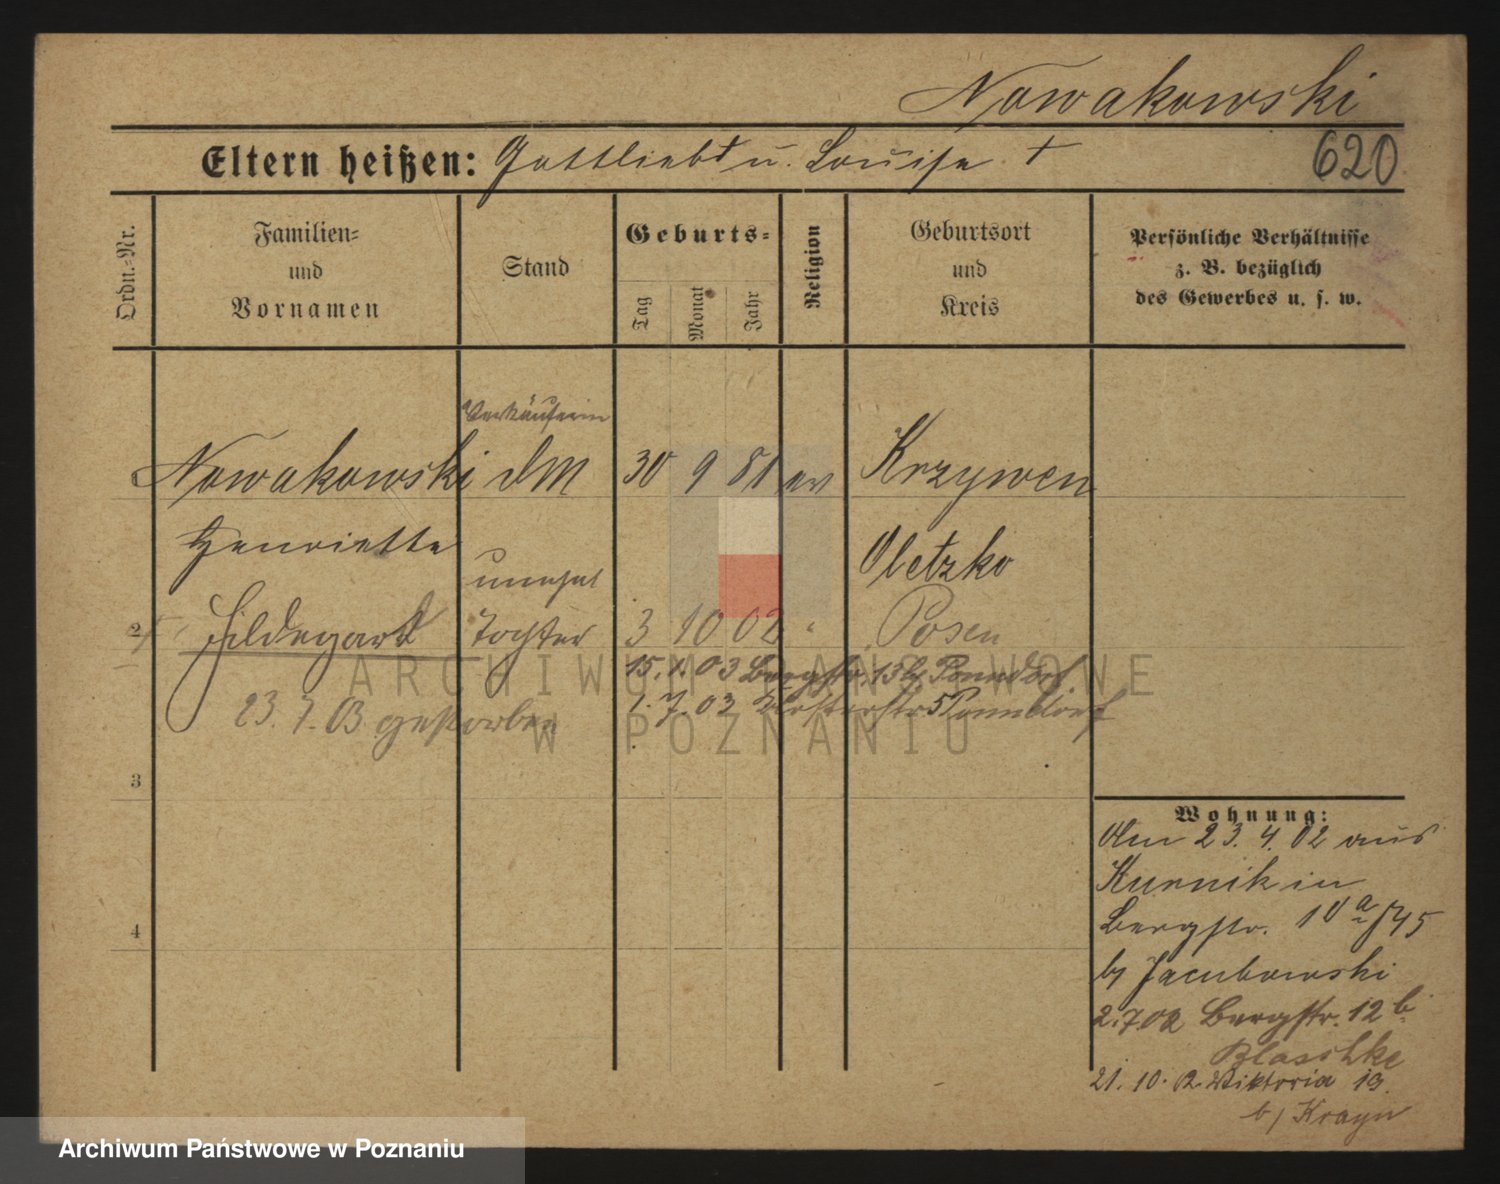 Nowakowski
Eltern heißen: Gottlieb † u. Louise †
620
Ordn.-Nr.
Familien-
und
Vornamen
Stand
Geburts-
Tag
Monat
Jahr
Religion
Geburtsort
und
Kreis
Persönliche Verhältnisse
z. B. bezüglich
des Gewerbes u. s. w.
Verkäuferin
Nowakowski DM 30 9 81 ev Krzywen
Henriette Oletzko
unehel
2 Hildegard Tochter 3 10 02 " Posen
15. 1. 03 Bergstr. 15 b/
23. 7. 03 gestorben
1. 7. 03 Klosterstr 5
ARCHIWUM PAŃSTWOWE
W POZNANIU
3
4
Wohnung:
Am 23. 4. 02 aus
Kurnik in
Bergstr. 10a
b/ Jacubowski
2.7.02 Bergstr. 12 b.
Blaschke
21. 10. 2. Viktoria 13
b/
Archiwum Państwowe w Poznaniu